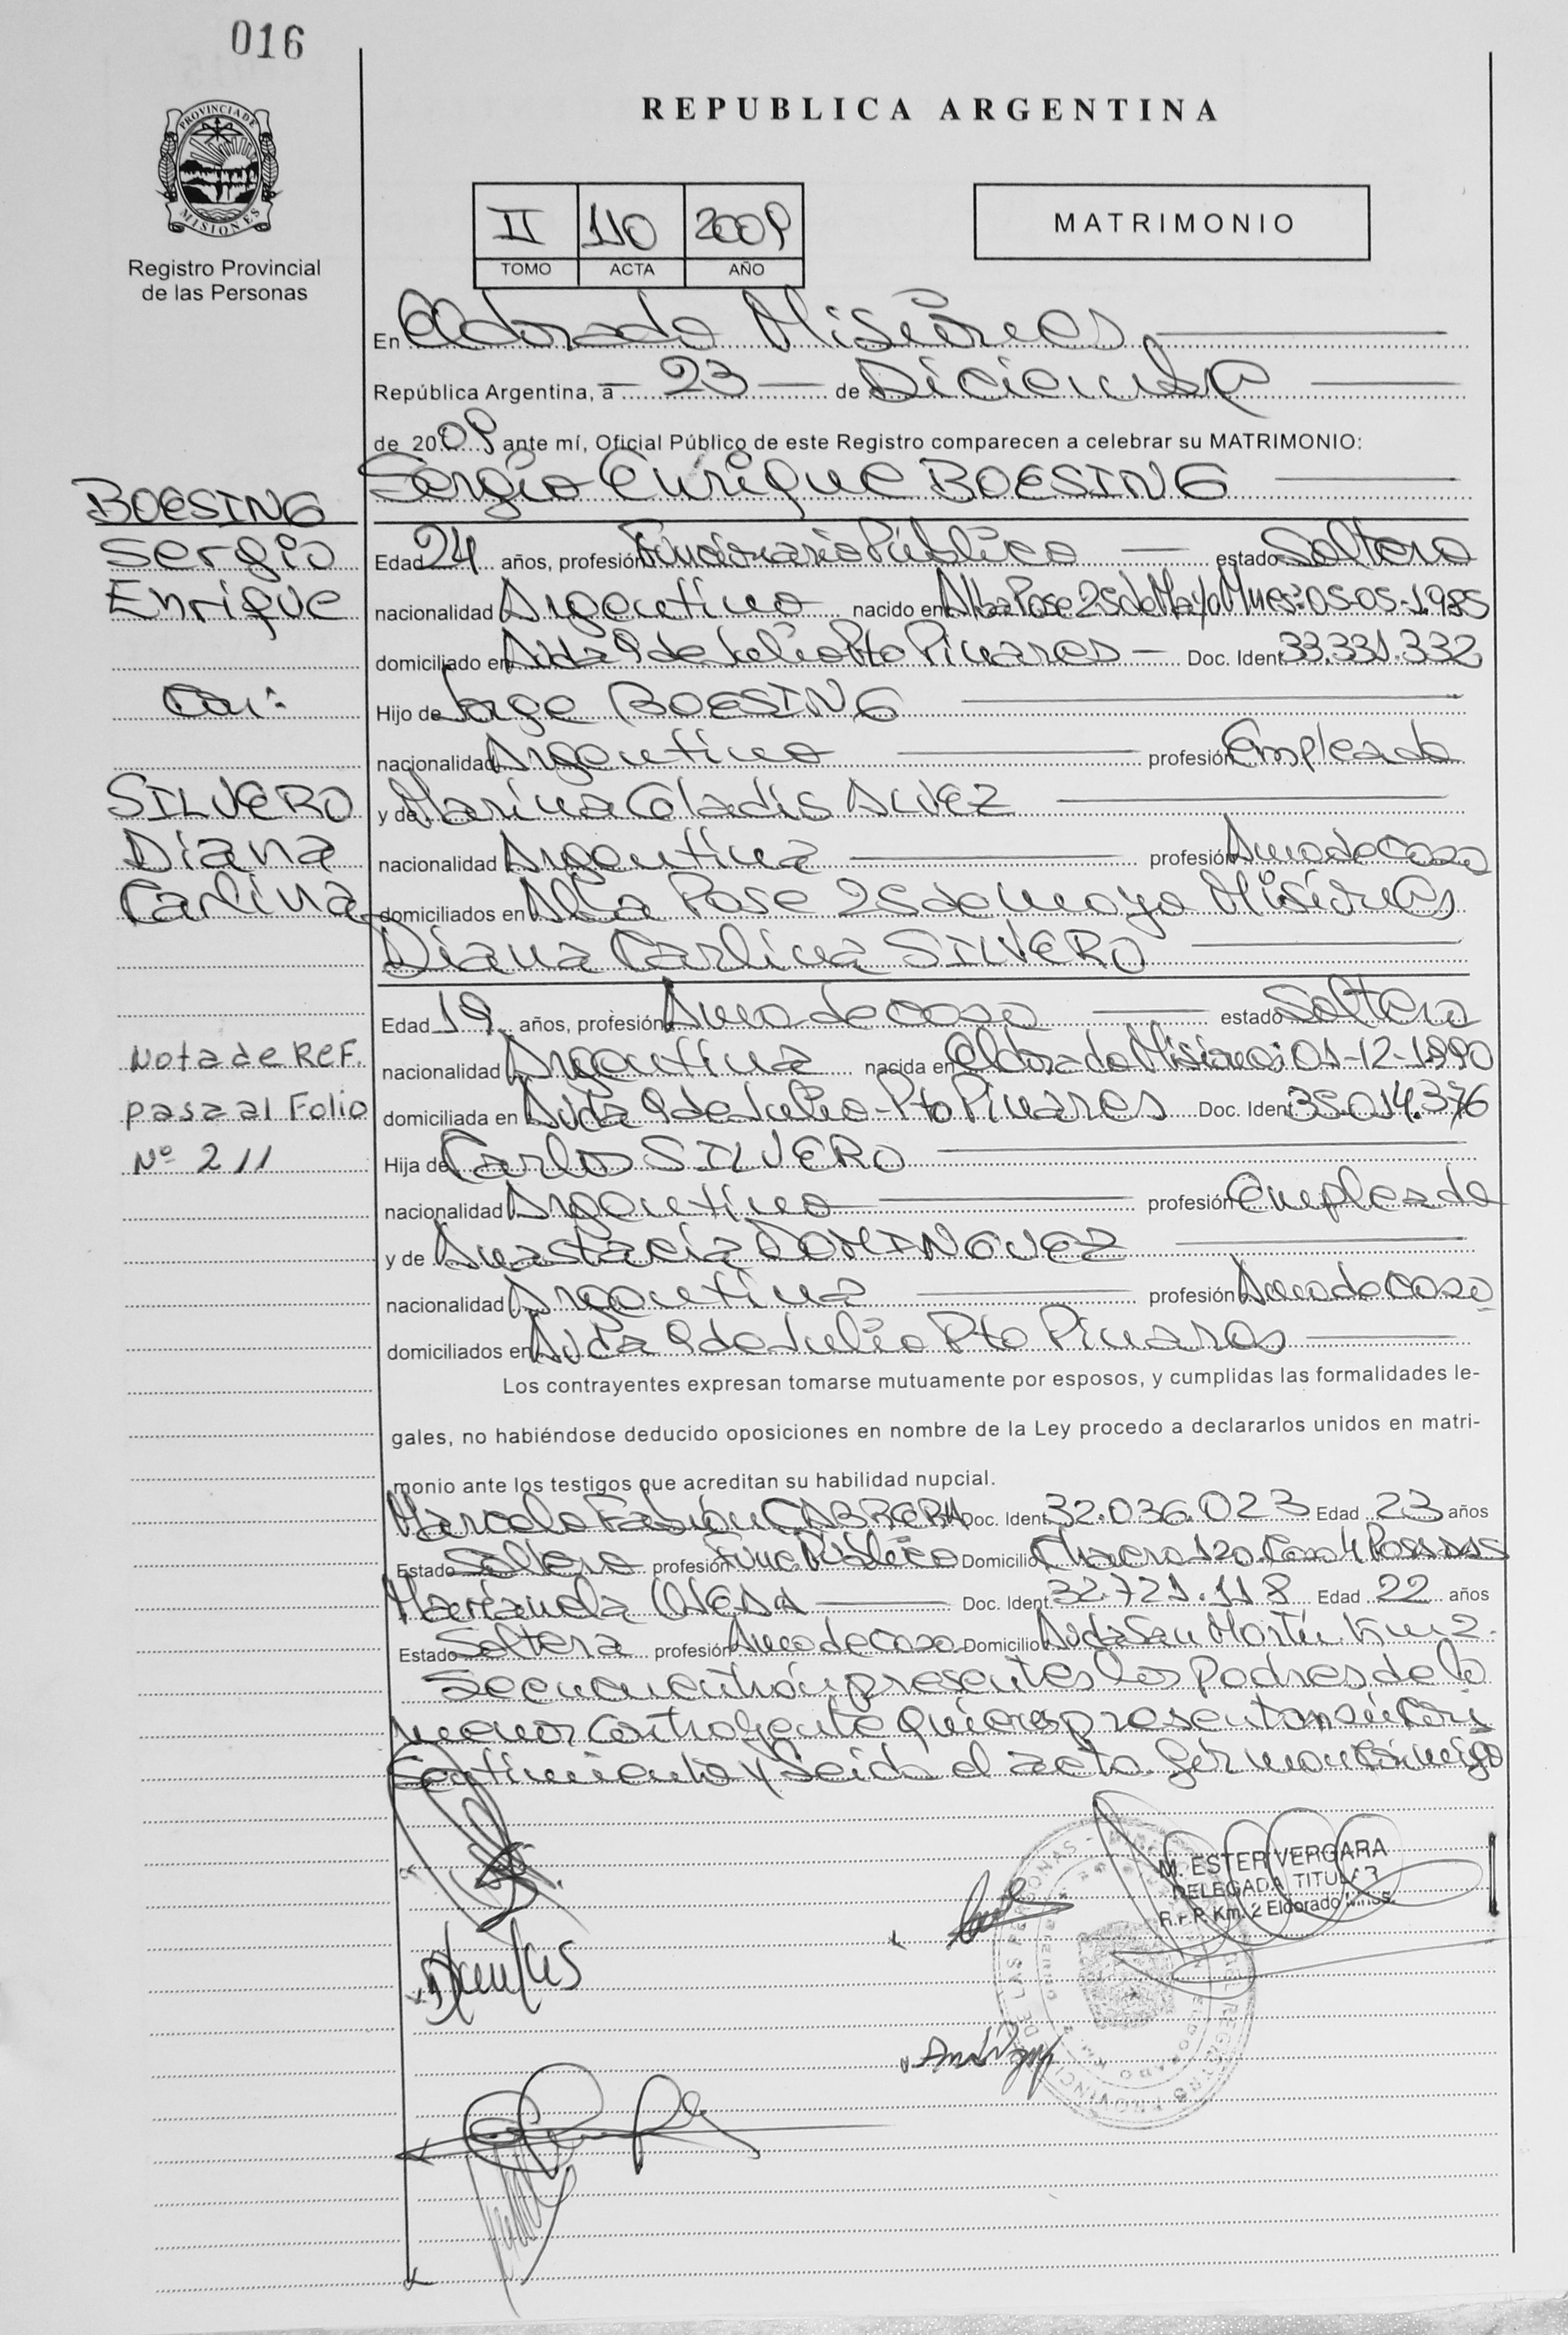 016
REPUBLICA ARGENTINA
PROVINCIA DE
MISIONES
Registro Provincial
de las Personas
II 110 2009
TOMO ACTA AÑO
MATRIMONIO
En Eldorado Misiones
República Argentina, a 23 de Diciembre
de 2009 ante mí, Oficial Público de este Registro comparecen a celebrar su MATRIMONIO:
Sergio Enrique BOESING
BOESING
Sergio
Enrique
Con:
SILVERO
Diana
Carlina
Nota de REF.
pasa al Folio
Nº 211
Edad 24 años, profesión Funcionario Público estado Soltero
nacionalidad Argentino nacido en Alba Pose 25 de Mayo Mnes: 05-05-1985
domiciliado en Avda 9 de Julio Pto Pinares Doc. Ident 33.331.332
Hijo de Jorge BOESING
nacionalidad Argentino profesión Empleado
y de Marina Gladis ALVEZ
nacionalidad Argentina profesión Ama de casa
domiciliados en Alba Pose 25 de mayo Misiones
Diana Carlina SILVERO
Edad 19 años, profesión Ama de casa estado Soltera
nacionalidad Argentina nacida en Eldorado Misiones: 01-12-1990
domiciliada en Avda 9 de Julio - Pto Pinares Doc. Ident 35.014.376
Hija de Carlos SILVERO
nacionalidad Argentino profesión Empleado
y de Anastacia DOMINGUEZ
nacionalidad Argentina profesión Ama de casa
domiciliados en Avda 9 de Julio Pto Pinares
Los contrayentes expresan tomarse mutuamente por esposos, y cumplidas las formalidades le-
gales, no habiéndose deducido oposiciones en nombre de la Ley procedo a declararlos unidos en matri-
monio ante los testigos que acreditan su habilidad nupcial.
Marcelo Fabián CABRERA Doc. Ident 32.036.023 Edad 23 años
Estado Soltero profesión Func. Público Domicilio Chacra 120 Casa 4 Posadas
Marianela OJEDA Doc. Ident 32.721.118 Edad 22 años
Estado Soltera profesión Ama de casa Domicilio Avda San Martín Km 2
Se encuentran presentes los padres de la
menor contrayente quienes presentan su con
sentimiento y leida el acta firman conmigo
M. ESTER VERGARA
DELEGADA TITULAR
R.P.P. Km. 2 Eldorado Mnes.